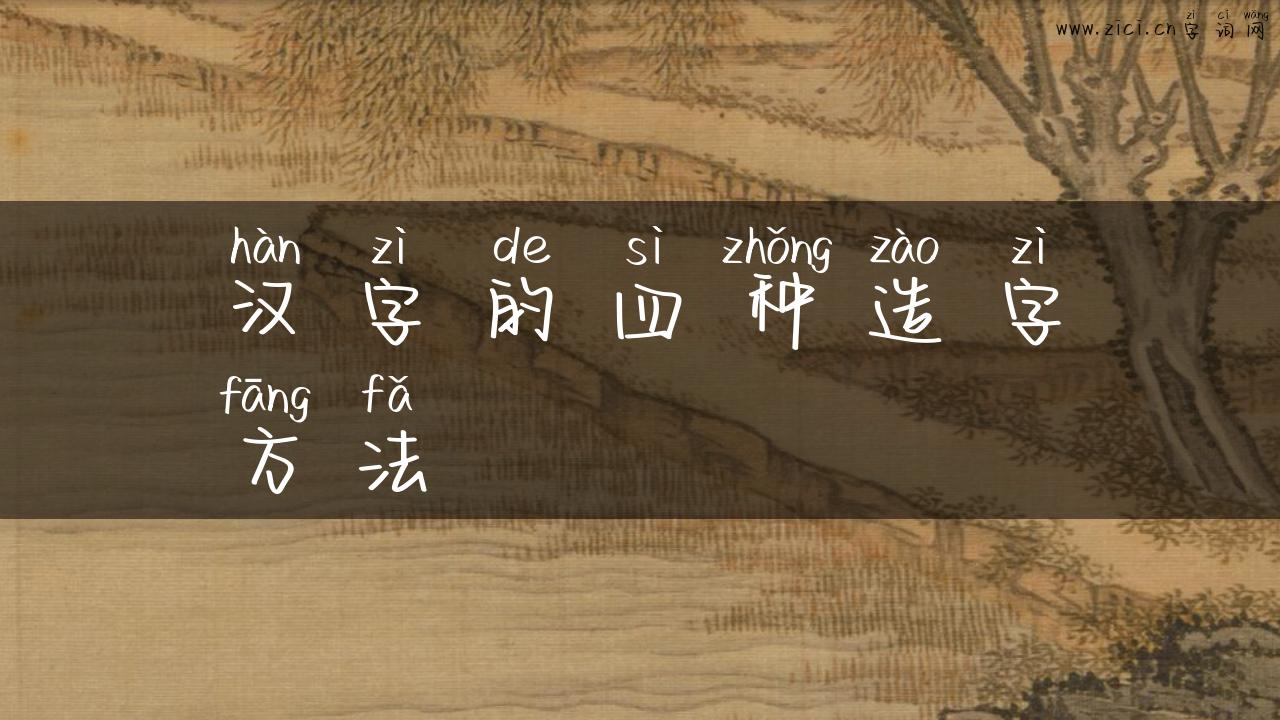 zì cí wǎng
www.zici.cn 字 词 网
hàn zì de sì zhǒng zào zì
汉 字 的 四 种 造 字
fāng fǎ
方 法